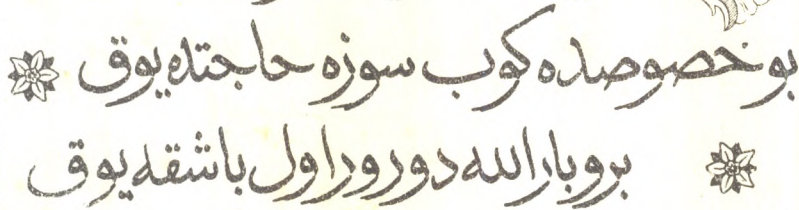 بو خصوصده كوب سوزه حاجتده يوق
بر و بار الله دور و ر اول باشقه يوق